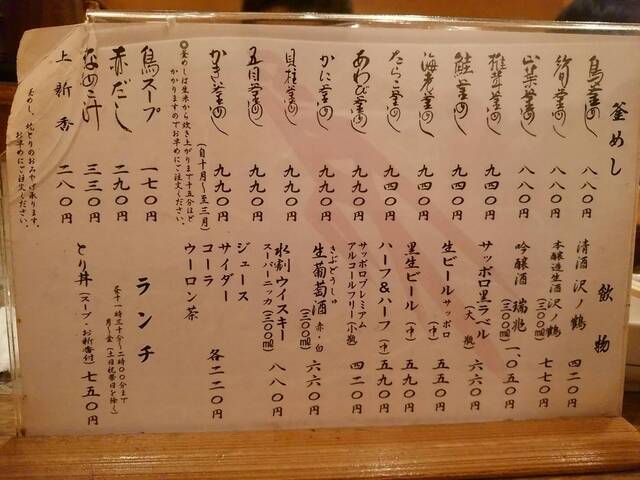 釜めし
鳥釜めし 八八〇円
筍釜めし 八八〇円
山菜釜めし 八八〇円
椎茸釜めし 九四〇円
鮭釜めし 九四〇円
海老釜めし 九四〇円
たらこ釜めし 九四〇円
あわび釜めし 九九〇円
かに釜めし 九九〇円
貝柱釜めし 九九〇円
五目釜めし 九九〇円
かき釜めし 九九〇円
(自十月~至三月)
◎釜めしは生米から炊き上がりまで十五分ほど
かかりますのでお早めにご注文ください。
鳥スープ 一七〇円
赤だし 二九〇円
なめこ汁 三三〇円
上新香 二八〇円
釜めし、焼とりのおみやげ承ります。
お早めにご注文ください。
飲物
清酒 沢ノ鶴 四二〇円
本醸造生酒 沢ノ鶴 (三〇〇㎖) 七七〇円
吟醸酒 瑞兆 (三〇〇㎖) 一、〇五〇円
サッポロ黒ラベル (大瓶) 六六〇円
生ビール サッポロ (中) 五五〇円
黒生ビール (中) 五九〇円
ハーフ&ハーフ (中) 五九〇円
サッポロプレミアム
アルコールフリー (小瓶) 四二〇円
きぶどうしゅ
生葡萄酒 赤・白 (三〇〇㎖) 六六〇円
水割ウイスキー
スーパーニッカ (三〇〇㎖) 八八〇円
ジュース
サイダー
コーラ
ウーロン茶
各二二〇円
ランチ
十一時三十分~二時〇〇分まで
月~金 (土日祝祭日を除く)
とり丼 (スープ・お新香付) 七五〇円